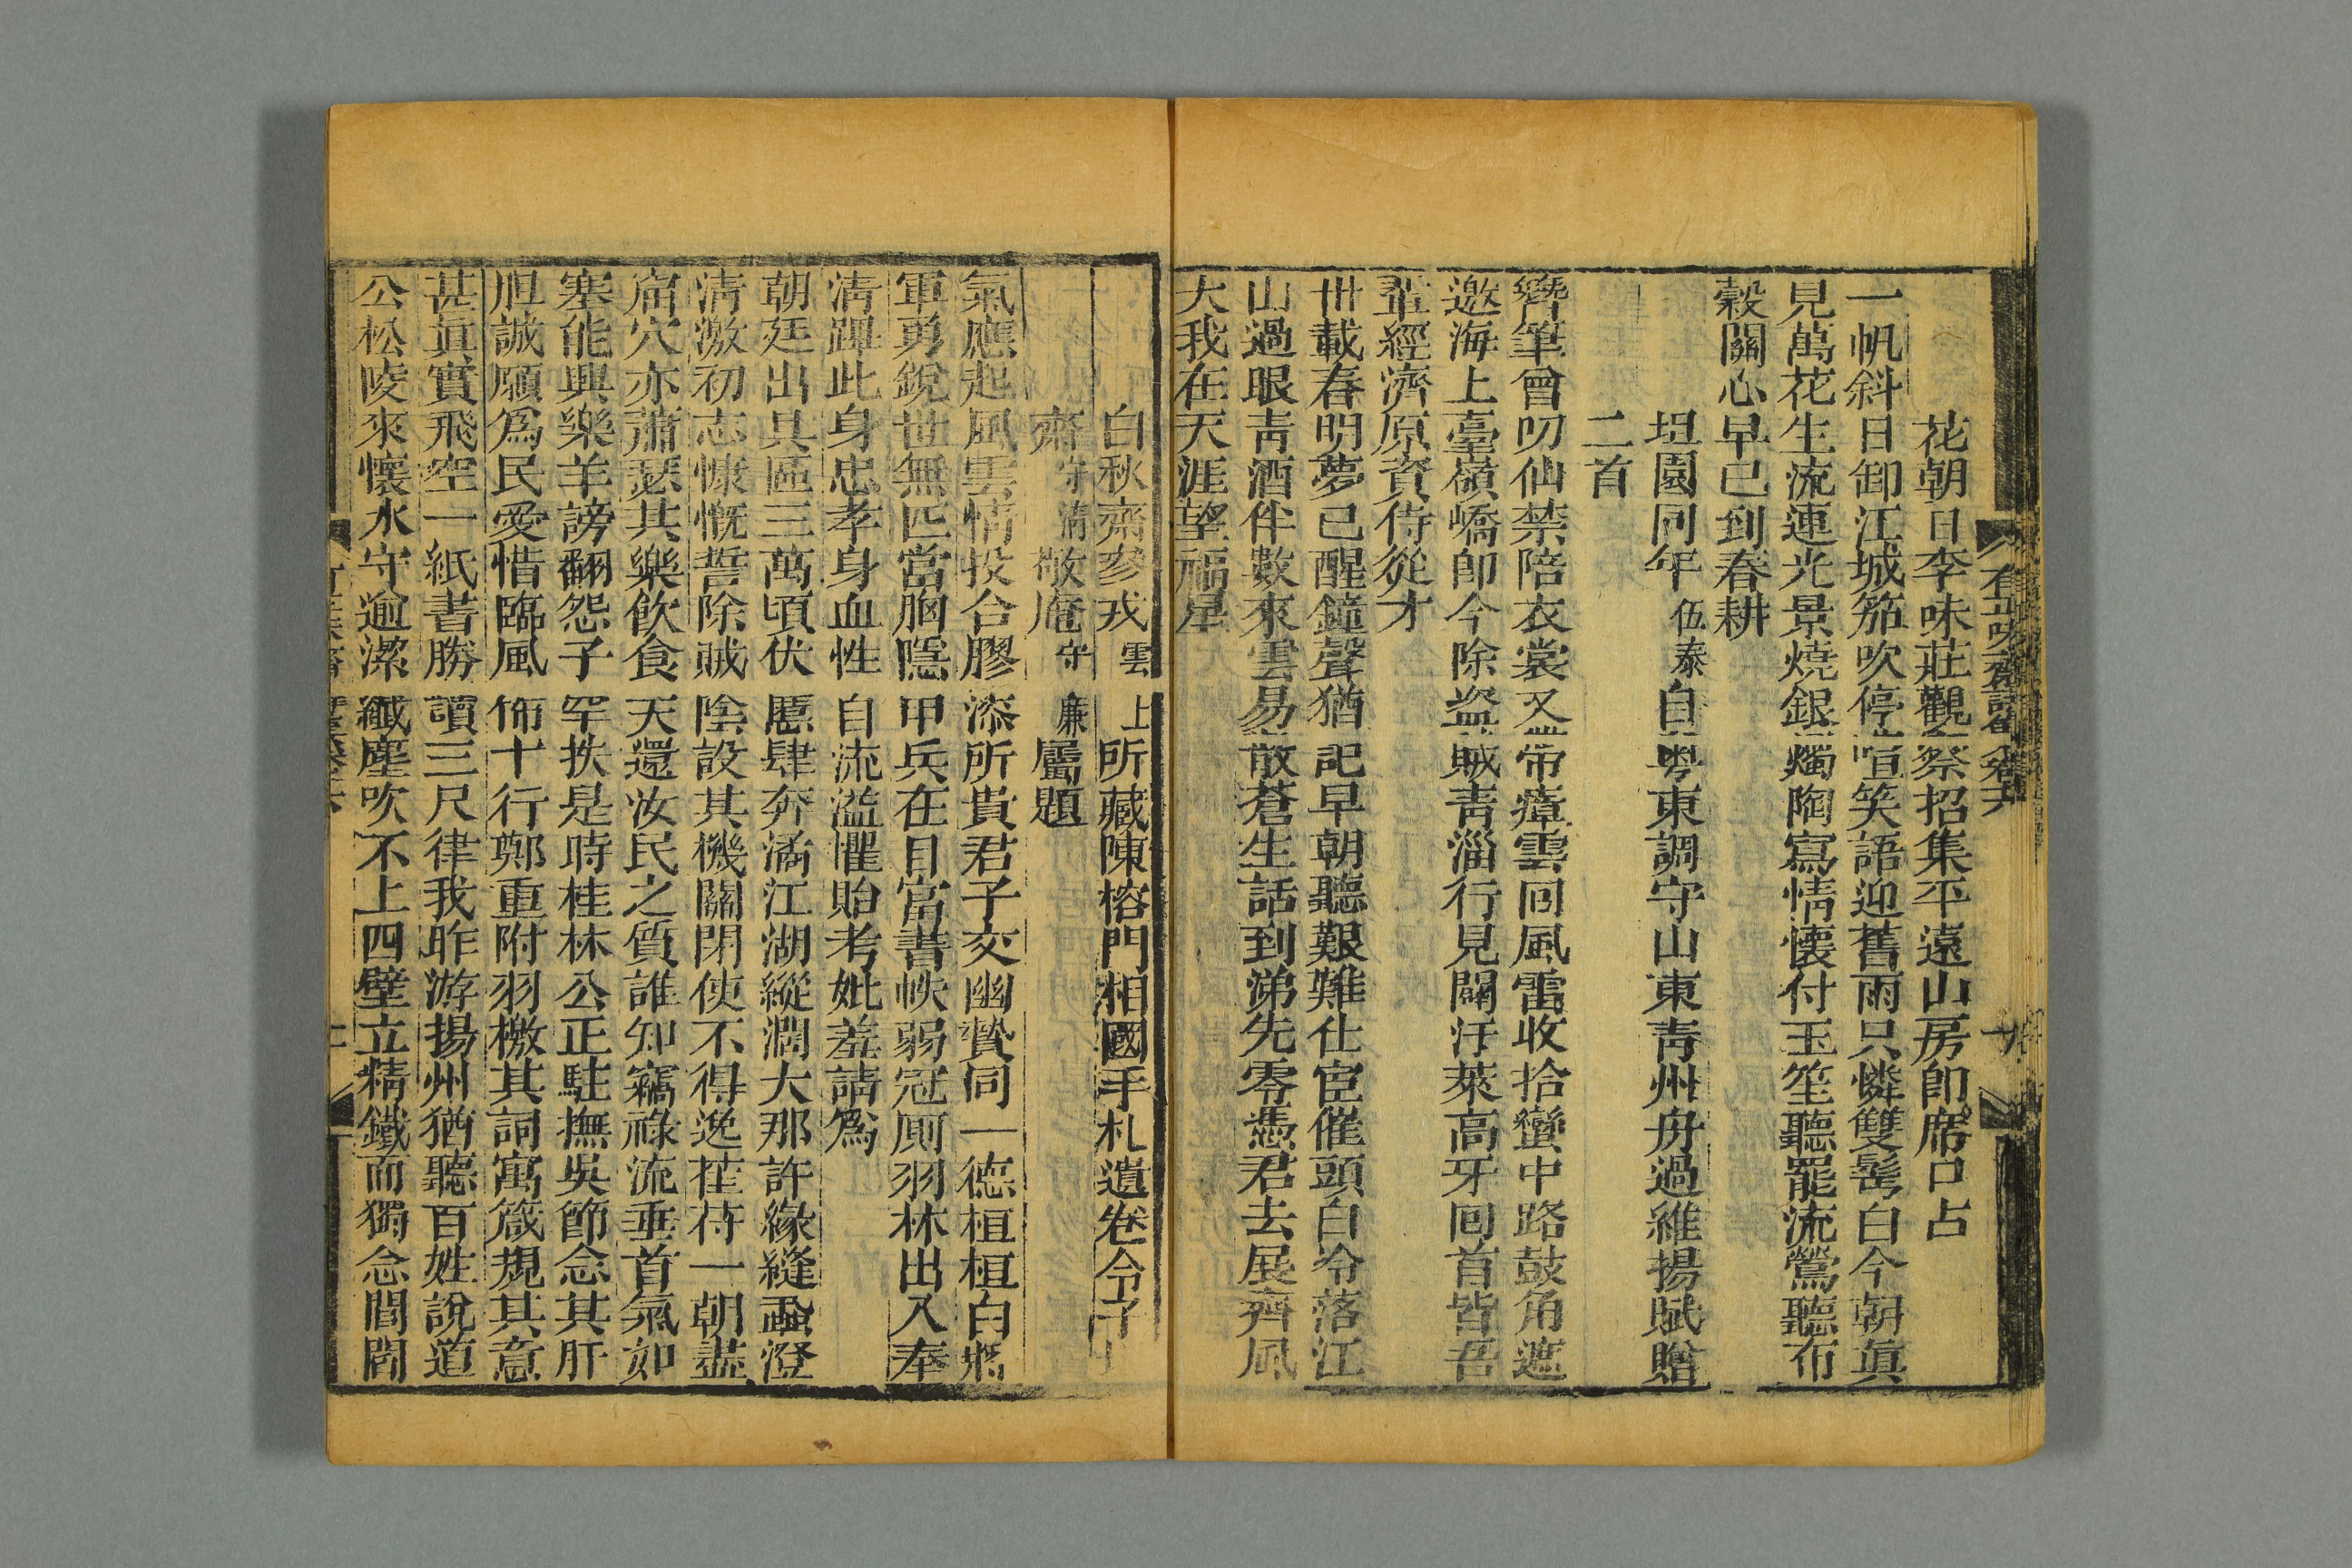 花朝日李味莊觀察招集平遠山房卽席口占
一帆斜日卸江城笳吹停喧笑語迎舊雨只憐雙髩白今朝眞
見萬花生流連光景燒銀燭陶寫情懷付玉笙聽罷流鶯聽布
穀關心早已到春耕
坦園同年伍泰自粤東調守山東青州舟過維揚賦贈
二首
簪筆曾叨仙禁陪衣裳又帶瘴雲回風雷收拾蠻中路鼓角遮
邀海上臺嶺嶠卽今除盜賊青淄行見闢汙萊高牙回首皆吾
輩經濟原資侍從才
卅載春明夢已醒鐘聲猶記早朝聽艱難仕宦催頭白冷落江
山過眼青酒伴數來雲易散蒼生話到涕先零憑君去展齊風
大我在天涯望福星
白秋齋參戎雲上所藏陳榕門相國手札遺卷令子
齋守清敬庵守廉屬題
氣應起風雲情投合膠漆所貴君子交幽贊同一德桓桓白將
軍勇銳世無匹當胸隱甲兵在目富書帙弱冠厠羽林出入奉
清蹕此身忠孝身血性自流溢懼貽考妣羞請爲
朝廷出具區三萬頃伏慝肆奔潏江湖縱濶大那許緣縫蝨澄
清激初志慷慨誓除賊陰設其機關閉使不得逸萑苻一朝盡
窟穴亦蕭瑟其樂飲食天還汝民之質誰知竊祿流垂首氣如
塞能興樂羊謗翻怨子罕抶是時桂林公正駐撫吳節念其肝
胆誠願爲民愛惜臨風佈十行鄭重附羽檄其詞寓箴規其意
甚眞實飛空一紙書勝讀三尺律我昨游揚州猶聽百姓說道
公松陵來懷冰守逾潔纖塵吹不上四壁立精鐵而獨念閭閻